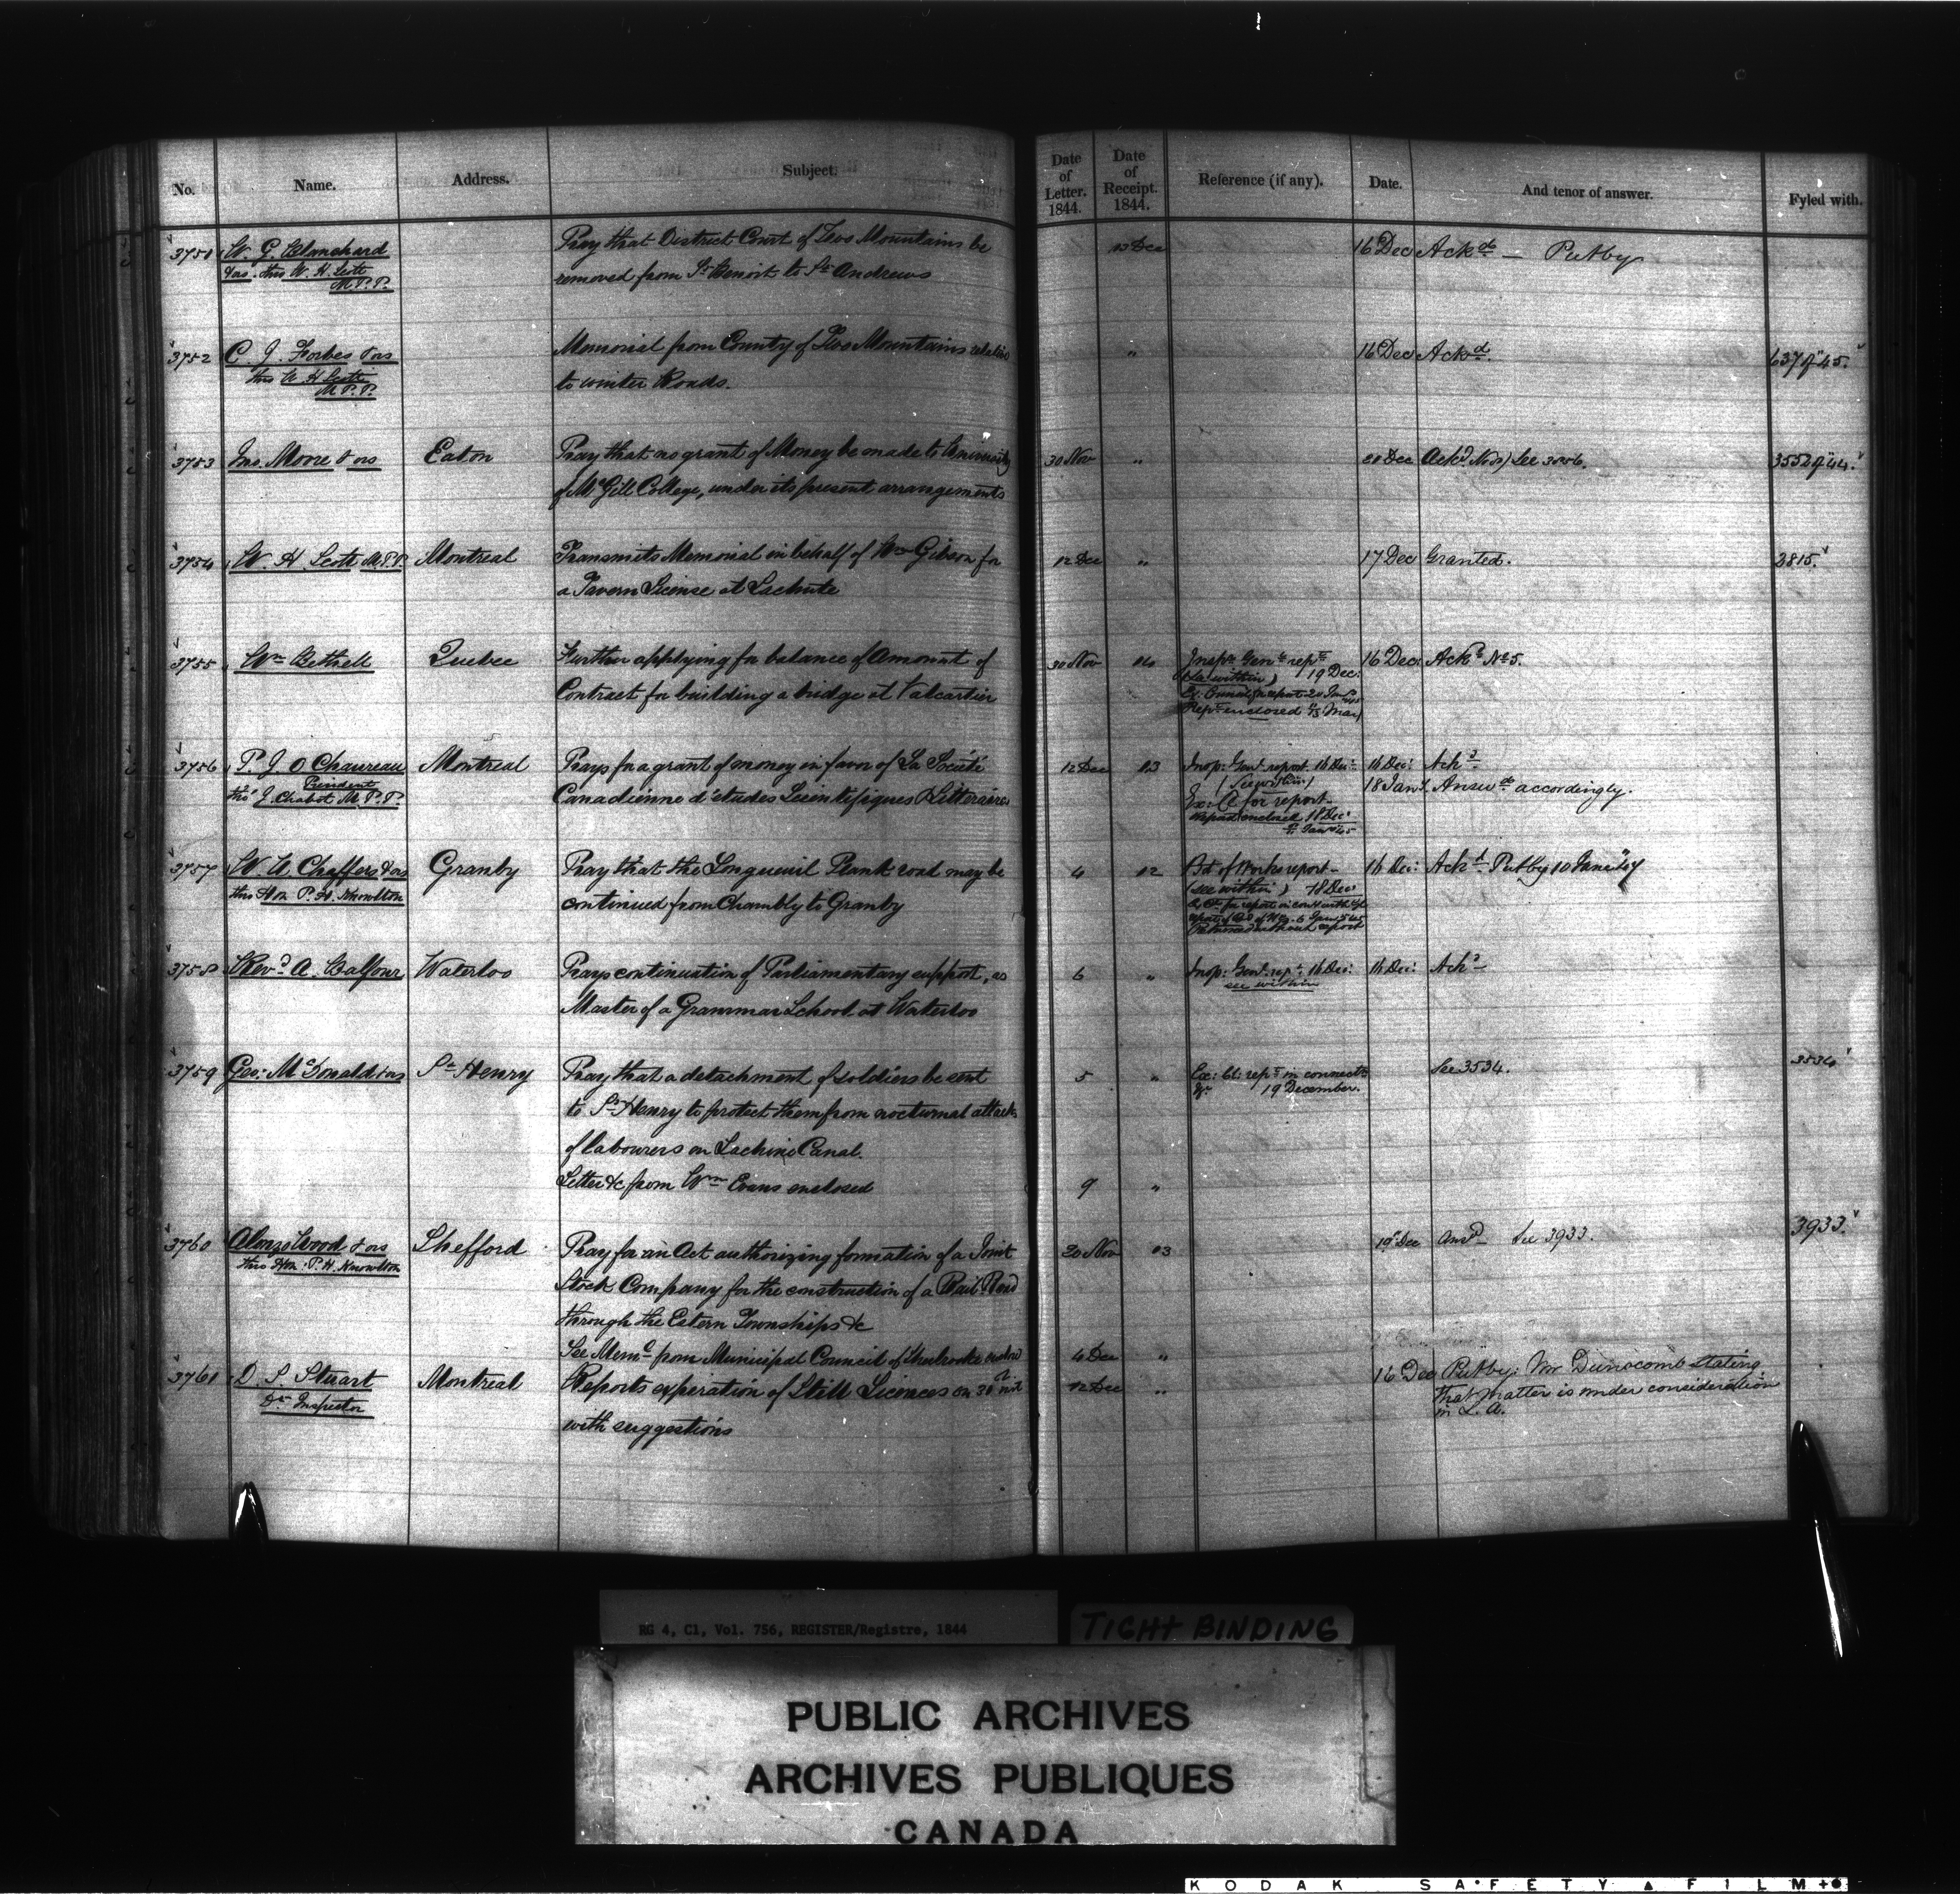 No. Name. Address. Subject. Date of Letter. 1844. Date of Receipt. 1844. Reference (if any). Date. And tenor of answer. Fyled with.
3751 W. G. Blanchard Pray that District Court of Two Mountains be 13 Dec 16 Dec Ackd — Put by
& ors. thro W. H. Scott removed from St Benoit to St Andrews
M.P.P.
3752 C. J. Forbes & ors Memorial from County of Two Mountains relative " 16 Dec Ackd. 637 of 45.
thro W H Scott to winter Roads.
M.P.P.
3753 Jno. Moore & ors Eaton Pray that no grant of Money be made to University 30 Nov " 20 Dec Ackd See 3552 of 44.
of McGill College, under its present arrangements
3754 W. H. Scott M.P.P. Montreal Transmits Memorial in behalf of Wm Gibson for 12 Dec " 17 Dec Granted. 2815.
a Tavern License at Lachute
3755 Wm Bethell Quebec Further applying for balance of Amount of 30 Nov 14 Inspr Genls rept 16 Dec: Ackd No 5.
Contract for building a bridge at Valcartier (see within) 19 Dec:
Ex. Council for report 20 Jany
Rept enclosed 15 May
3756 P. J. O Chauveau Montreal Prays for a grant of money in favor of La Société 12 Dec 13 Insp: Genl. report 16 Dec: 16 Dec: Ackd
President (See within) 18 Jany. Answd accordingly.
thro' J. Chabot M.P.P. Canadienne d'études Scientifiques & Littéraires Ex: C. for report
Report enclosed 18 Dec:
3757 W. U Chaffers & ors Granby Pray that the Longueuil Plank road may be 4 12 Bd of Works report — 16 Dec: Ackd. Put by 10 June 47
thro Hon P. H. Knowlton continued from Chambly to Granby (see within) 18 Dec
Returned without report
3758 Revd A. Balfour Waterloo Prays continuation of Parliamentary support, as 6 " Insp: Genl. rept. 16 Dec: 16 Dec: Ackd
see within
Master of a Grammar School at Waterloo
3759 Geo: McDonald & ors St Henry Pray that a detachment of soldiers be sent 5 " Ex: Cl: rept in connectn See 3534. 3534
19 December.
to St Henry to protect them from nocturnal attack
of labourers on Lachine Canal.
Letter &c from Wm Evans enclosed 9 "
3760 Alonzo Wood & ors Shefford Pray for an Act authorizing formation of a Joint 30 Nov 13 19 Dec Ansd — See 3933. 3933.
thro Hon. P. H. Knowlton
Stock Company for the construction of a Rail Road
through the Estern Townships &c
See Meml from Municipal Council of Sherbrooke 4 Dec "
3761 D. S. Stuart Montreal Reports expiration of Still Licences on 30th inst 12 Dec " 16 Dec Put by; Mr. Dunscomb stating
Dr Inspector that matter is under consideration
with suggestions in L. A.
RG 4, C1, Vol. 756, REGISTER/Registre, 1844
TIGHT BINDING
PUBLIC ARCHIVES
ARCHIVES PUBLIQUES
CANADA
KODAK SAFETY FILM